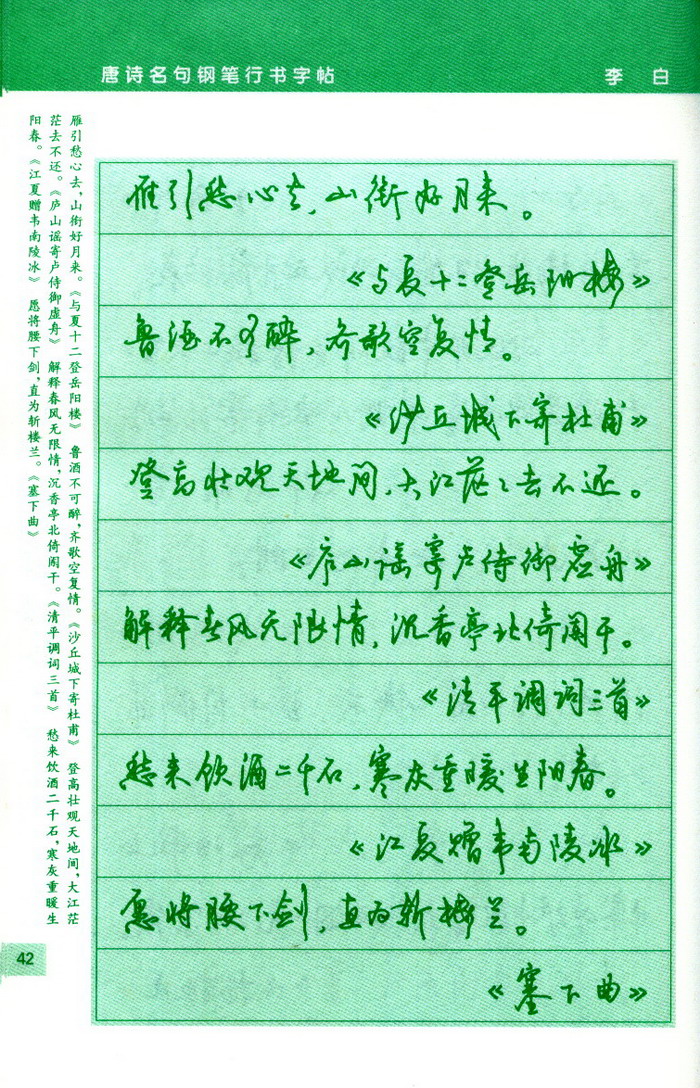 唐诗名句钢笔行书字帖
李 白
雁引愁心去,山衔好月来。《与夏十二登岳阳楼》 鲁酒不可醉,齐歌空复情。《沙丘城下寄杜甫》 登高壮观天地间,大江茫
茫去不还。《庐山谣寄卢侍御虚舟》 解释春风无限情,沉香亭北倚阑干。《清平调词三首》 愁来饮酒二千石,寒灰重暖生
阳春。《江夏赠韦南陵冰》 愿将腰下剑,直为斩楼兰。《塞下曲》
雁引愁心去,山衔好月来。
《与夏十二登岳阳楼》
鲁酒不可醉,齐歌空复情。
《沙丘城下寄杜甫》
登高壮观天地间,大江茫々去不还。
《庐山谣寄卢侍御虚舟》
解释春风无限情,沉香亭北倚阑干。
《清平调词三首》
愁来饮酒二千石,寒灰重暖生阳春。
《江夏赠韦南陵冰》
愿将腰下剑,直为斩楼兰。
《塞下曲》
42